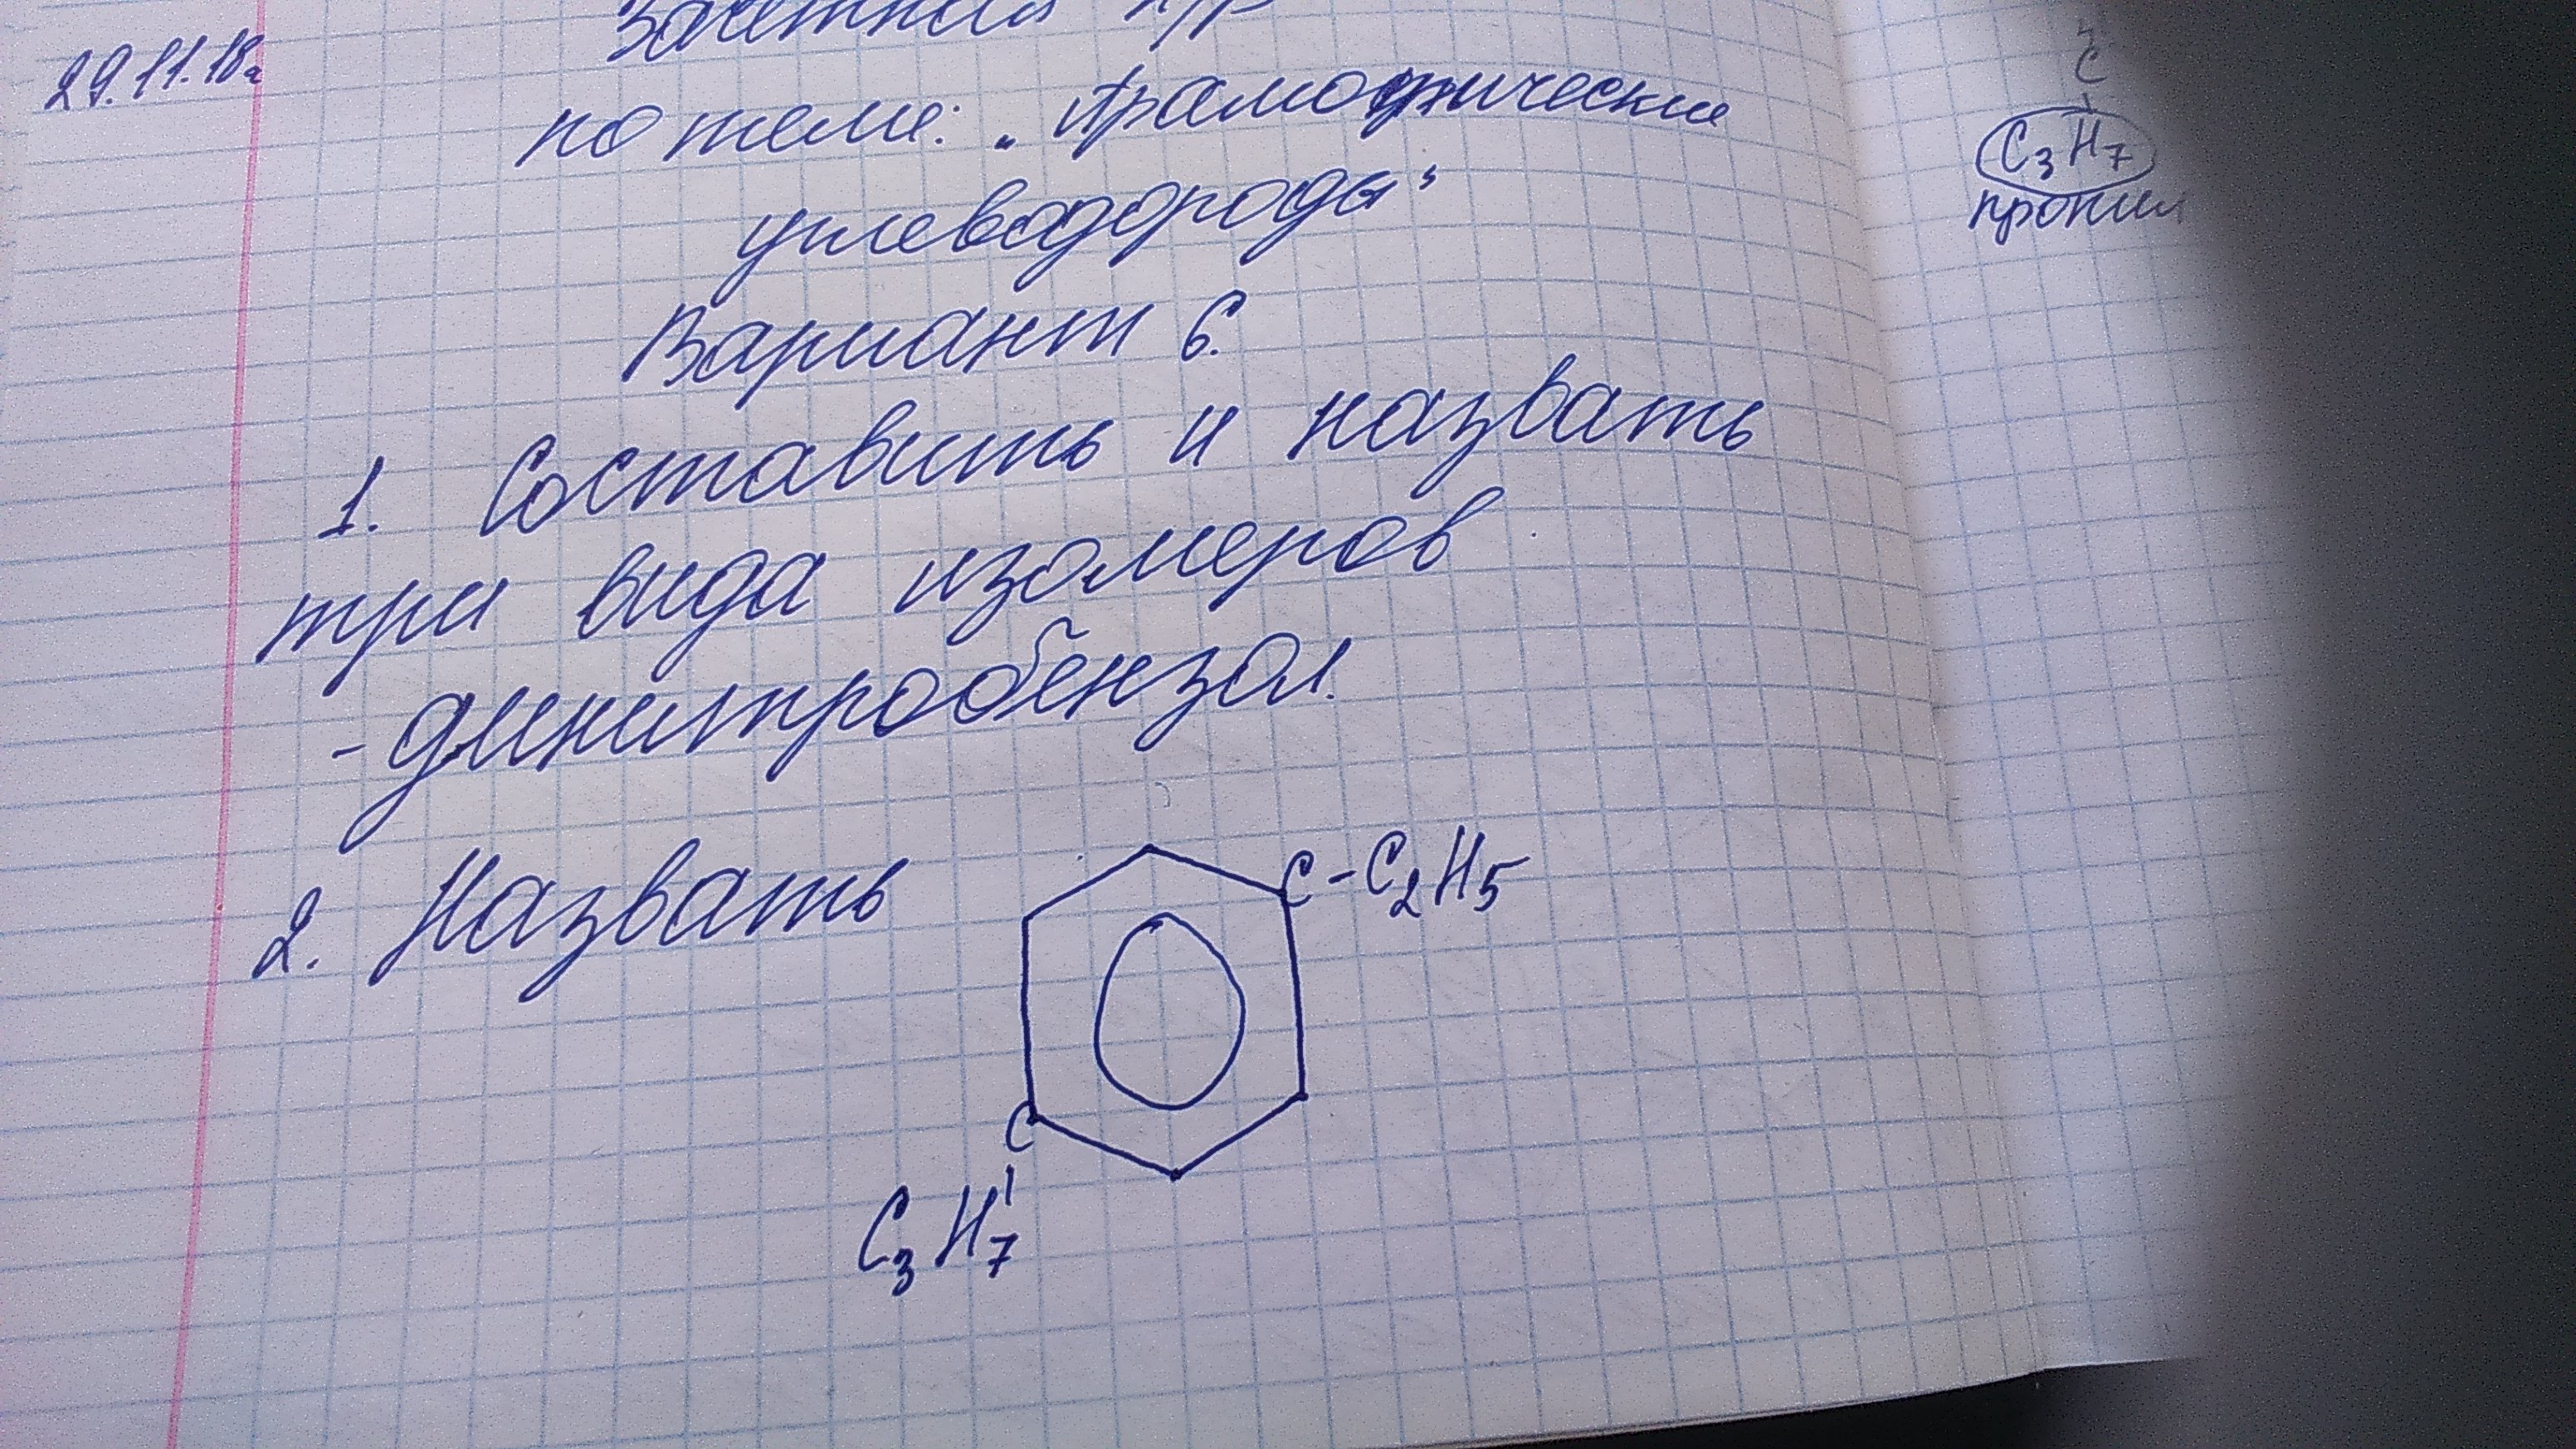 29.11.18г
Зачетная к/р
по теме: „Арамотические
углеводороды"
Вариант 6.
1. Составить и назвать
три вида изомеров
- динитробензол.
2. Назвать
C-C2H5
C
C3H7
C
C3H7
пропил